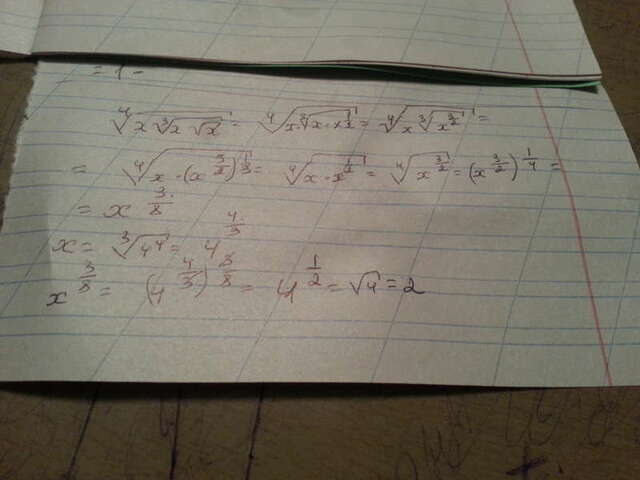 = 1 -
∜(x ∛(x √x)) = ∜(x ∛(x · x^(1/2))) = ∜(x ∛(x^(3/2))) =
= ∜(x · (x^(3/2))^(1/3)) = ∜(x · x^(1/2)) = ∜(x^(3/2)) = (x^(3/2))^(1/4) =
= x^(3/8).
x = ∛(4^4) = 4^(4/3)
x^(3/8) = (4^(4/3))^(3/8) = 4^(1/2) = √4 = 2